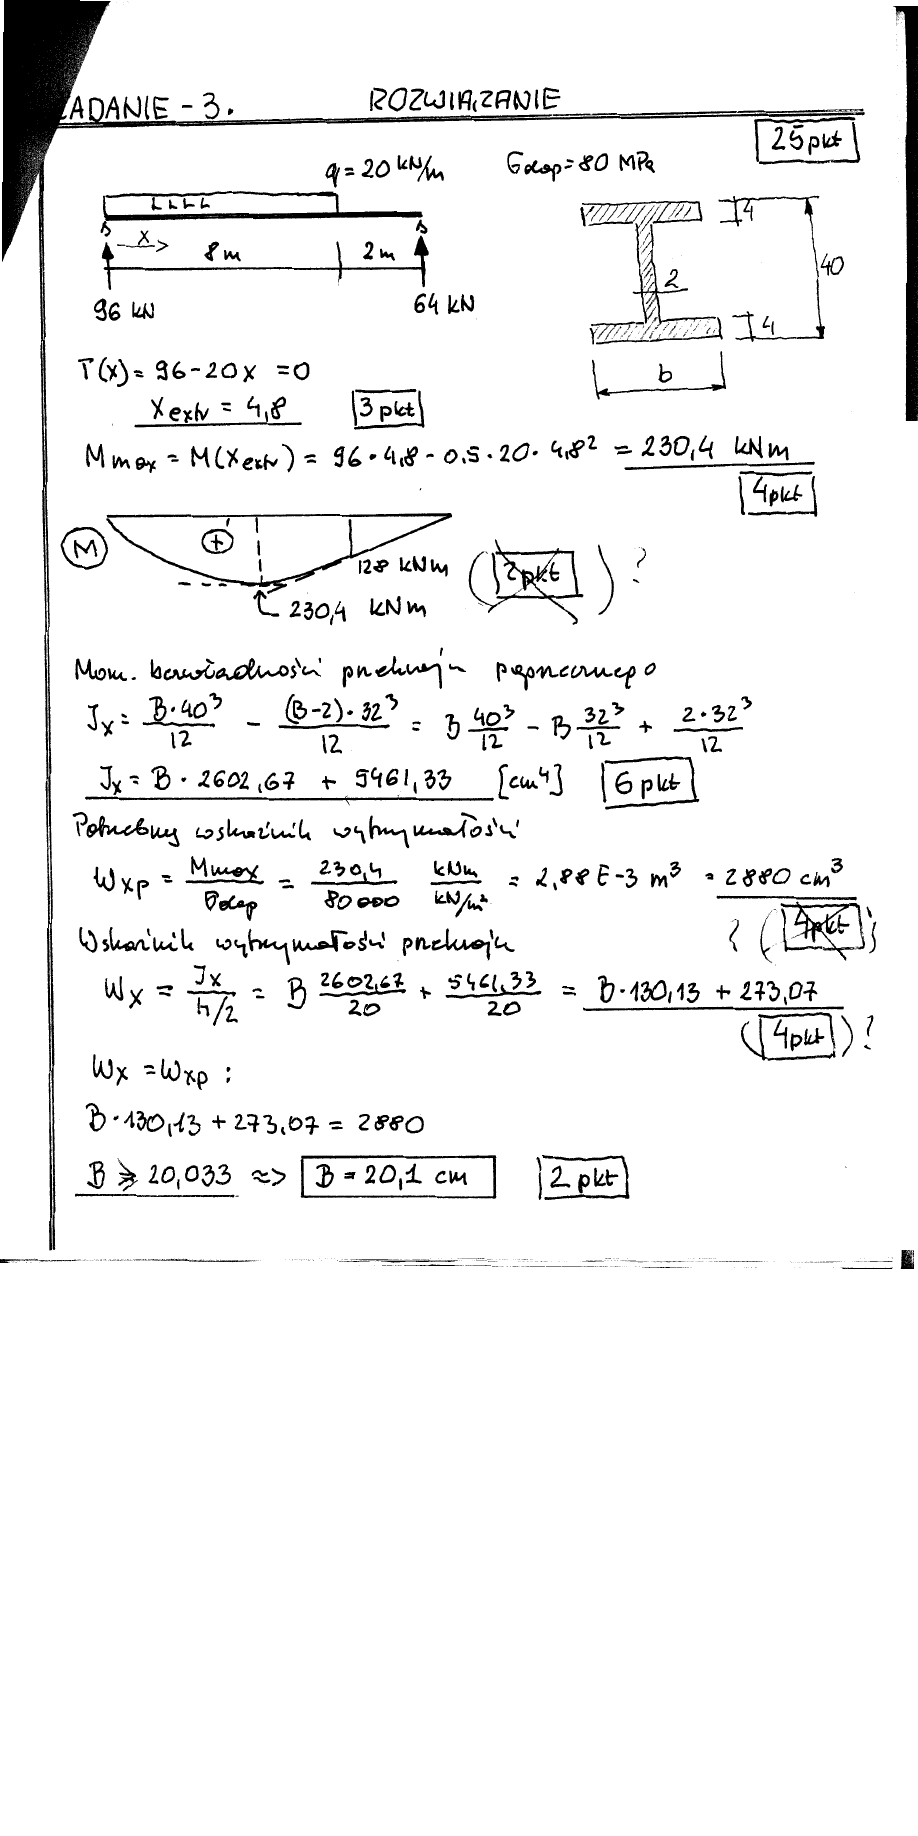 ZADANIE - 3. ROZWIĄZANIE
25 pkt
q = 20 kN/m
σdop = 80 MPa
x
8 m
2 m
96 kN
64 kN
4
2
40
4
b
T(x) = 96 - 20x = 0
Xextr = 4,8
3 pkt
Mmax = M(Xextr) = 96 · 4,8 - 0,5 · 20 · 4,8² = 230,4 kNm
4pkt
M
+
128 kNm
230,4 kNm
( 2pkt ) ?
Mom. bezwładności przekroju poprzecznego
Jx = B·40³/12 - (B-2)·32³/12 = B 40³/12 - B 32³/12 + 2·32³/12
Jx = B · 2602,67 + 5461,33 [cm⁴]
6 pkt
Potrzebny wskaźnik wytrzymałości
Wxp = Mmax/σdop = 230,4/80000 kNm/kN/m² = 2,88 E-3 m³ = 2880 cm³
? ( 4pkt )
Wskaźnik wytrzymałości przekroju
Wx = Jx/h/2 = B 2602,67/20 + 5461,33/20 = B·130,13 + 273,07
( 4pkt ) ?
Wx = Wxp :
B·130,13 + 273,07 = 2880
B ≥ 20,033 ≈> B = 20,1 cm
2 pkt